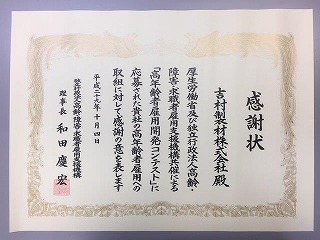 感謝状
吉村製材株式会社殿
厚生労働省及び独立行政法人高齢・
障害・求職者雇用支援機構共催による
「高年齢者雇用開発コンテスト」に
応募された貴社の高年齢者雇用への
取組に対して感謝の意を表します
平成二十九年十月四日
独立行政法人高齢・障害・求職者雇用支援機構
理事長 和田慶宏